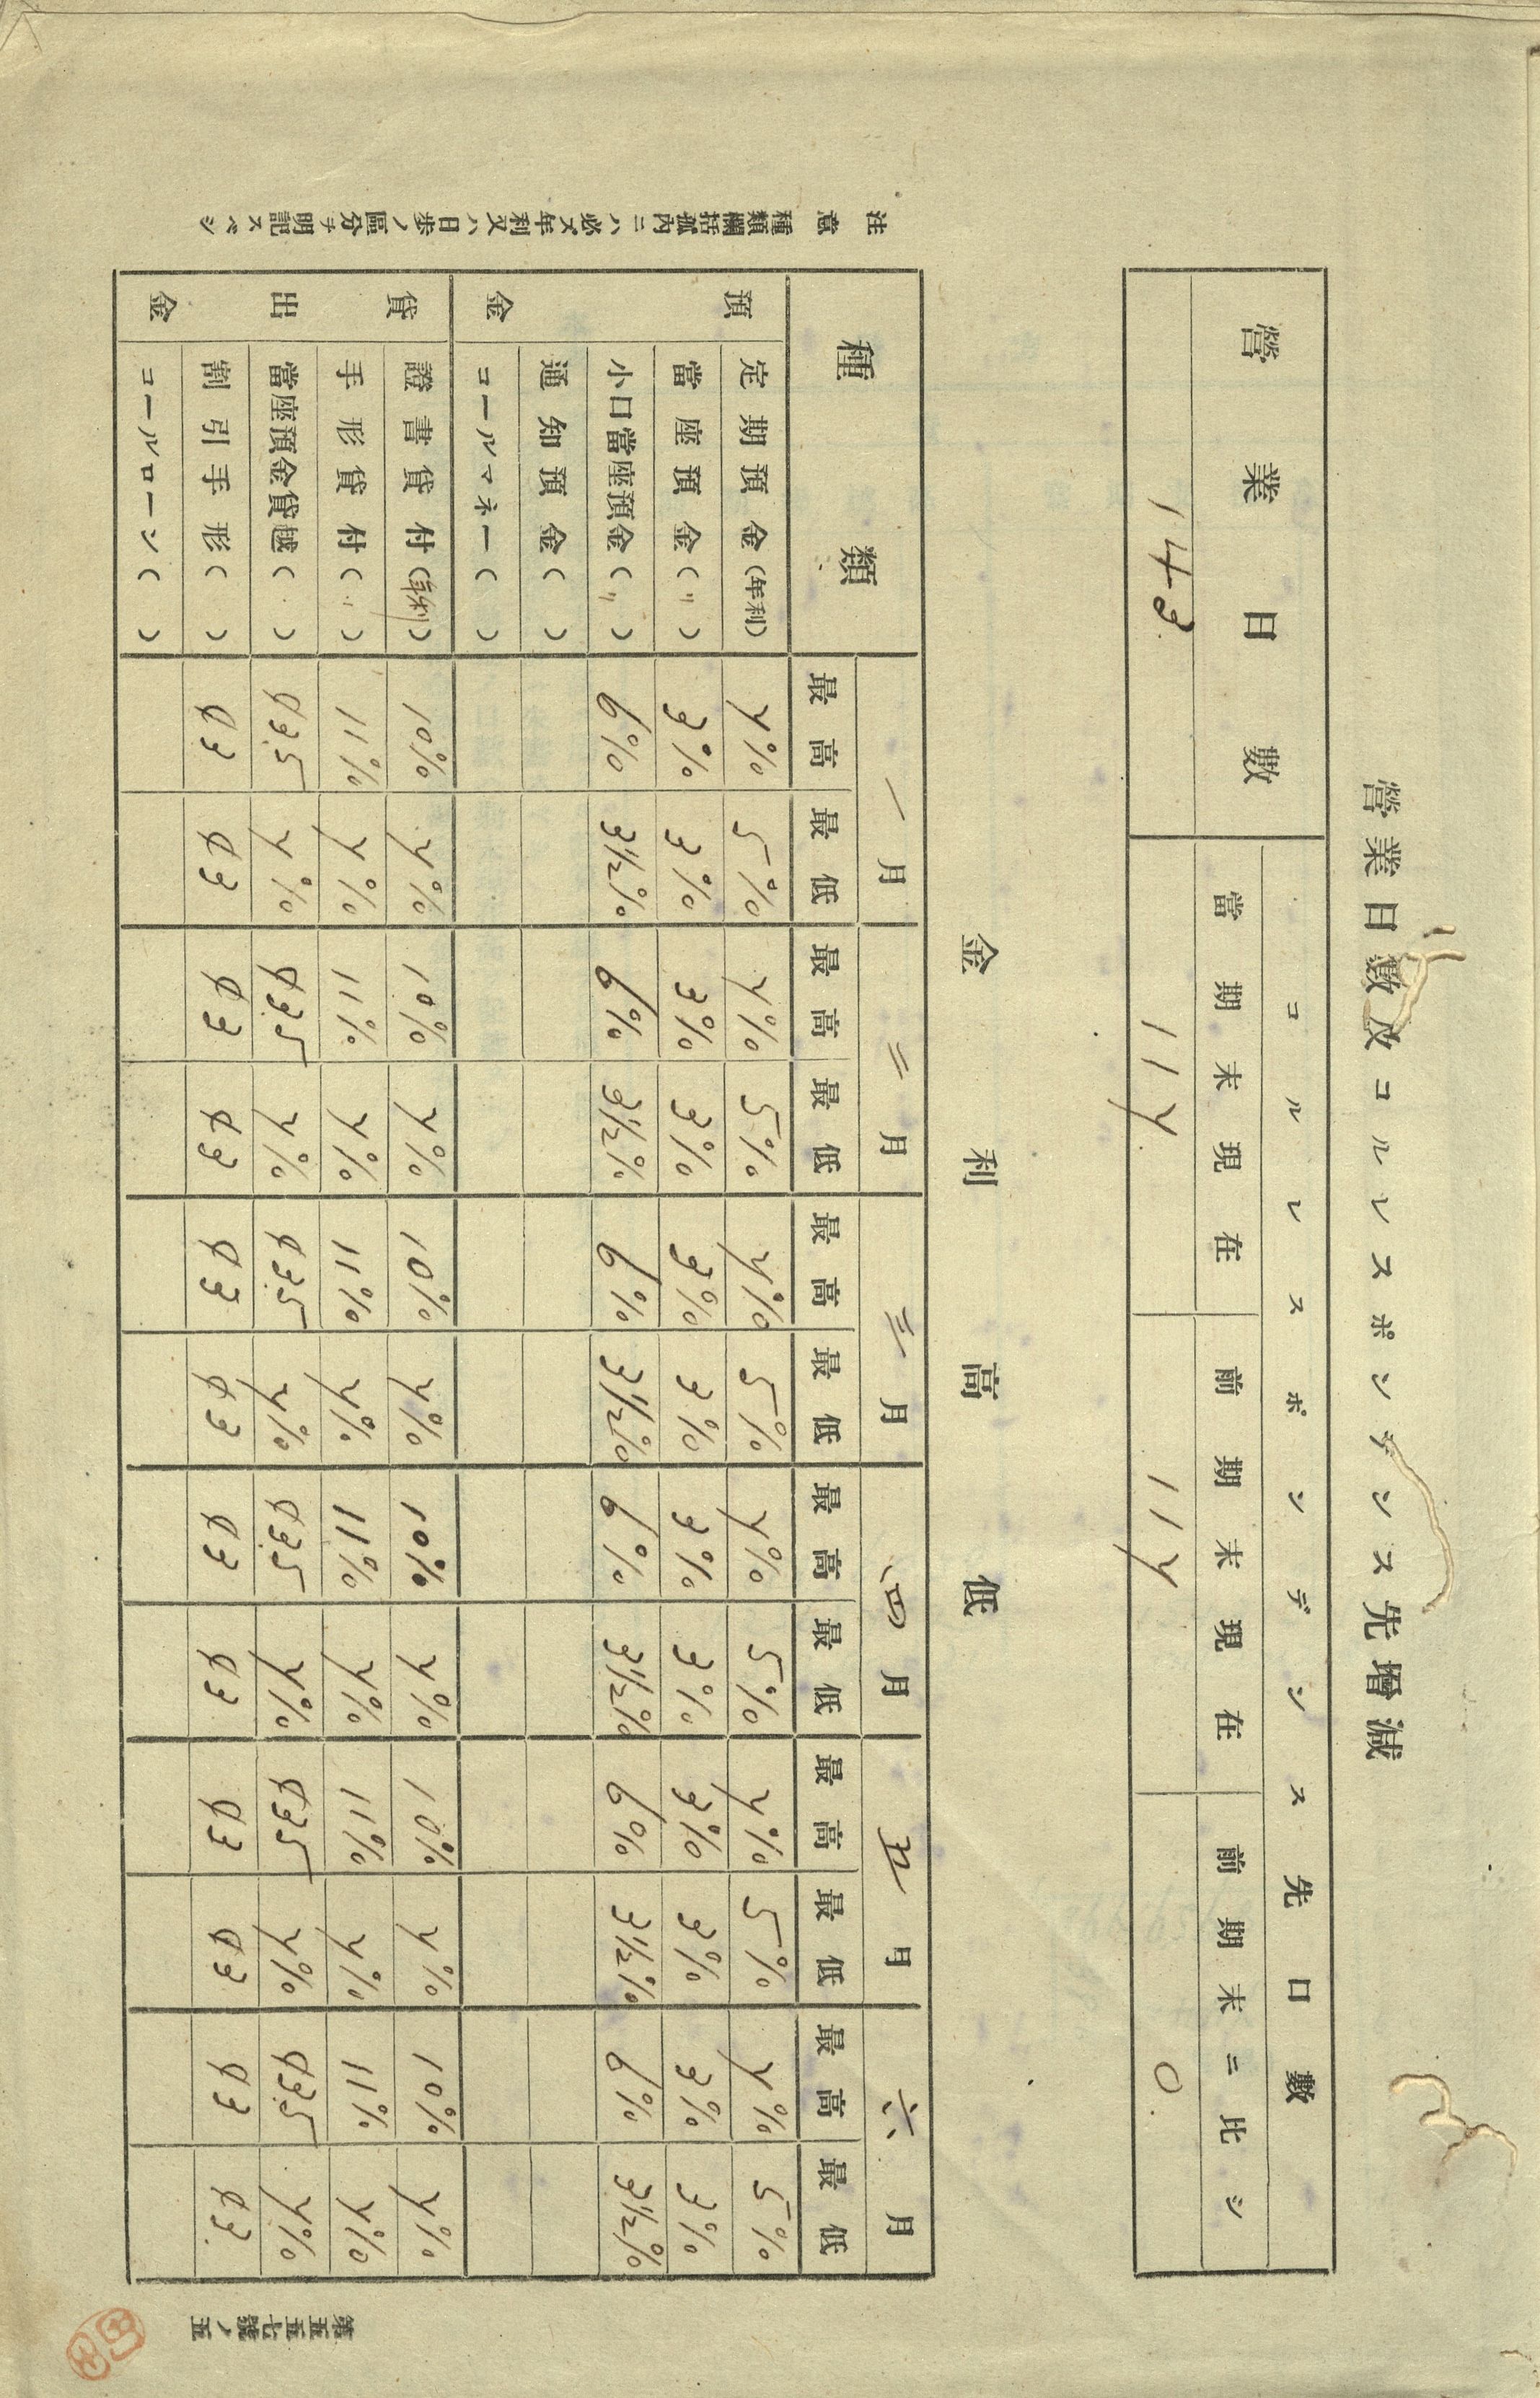 營業日數及コルレスポンデンス先增減
營業日數 コルレスポンデンス先口數
當期末現在 前期末現在 前期末ニ比シ
143 117 117 0
金利高低
種類 一月 二月 三月 四月 五月 六月
最高 最低 最高 最低 最高 最低 最高 最低 最高 最低 最高 最低
預金
定期預金(年利) 7% 5% 7% 5% 7% 5% 7% 5% 7% 5% 7% 5%
當座預金(〃) 3% 3% 3% 3% 3% 3% 3% 3% 3% 3% 3% 3%
小口當座預金(〃) 6% 3½% 6% 3½% 6% 3½% 6% 3½% 6% 3½% 6% 3½%
通知預金( )
コールマネー( )
貸出金
證書貸付(年利) 10% 7% 10% 7% 10% 7% 10% 7% 10% 7% 10% 7%
手形貸付(〃) 11% 7% 11% 7% 11% 7% 11% 7% 11% 7% 11% 7%
當座預金貸越( ) ¢3.5 7% ¢3.5 7% ¢3.5 7% ¢3.5 7% ¢3.5 7% ¢3.5 7%
割引手形( ) ¢3 ¢3 ¢3 ¢3 ¢3 ¢3 ¢3 ¢3 ¢3 ¢3 ¢3 ¢3
コールローン( )
注意 種類欄括弧內ニハ必ズ年利又ハ日歩ノ區分ヲ明記スベシ
第五五七號ノ五